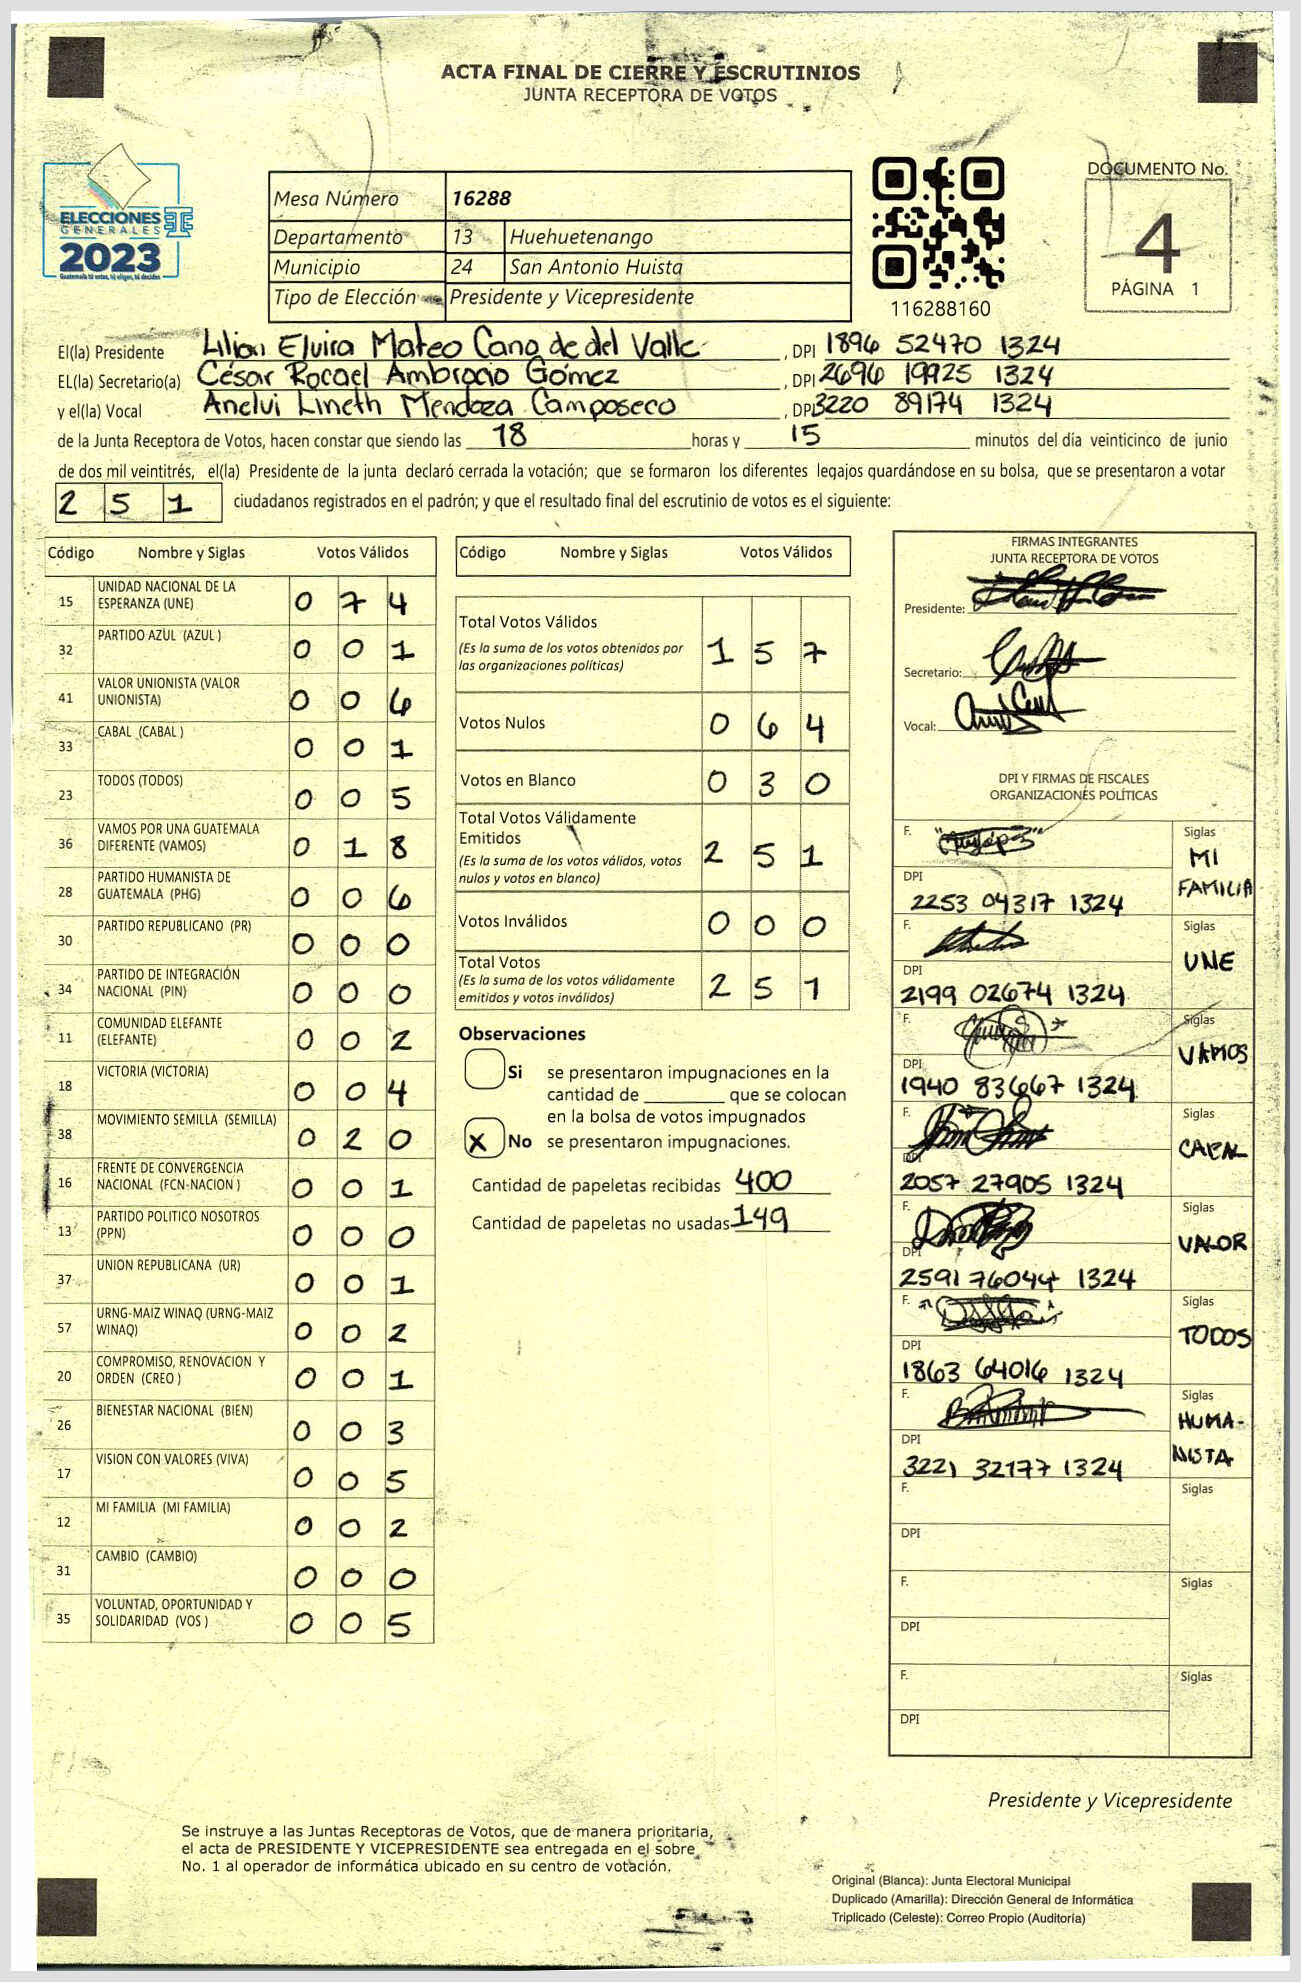 ACTA FINAL DE CIERRE Y ESCRUTINIOS
JUNTA RECEPTORA DE VOTOS
ELECCIONES
GENERALES
2023
Guatemala tú votas, tú eliges, tú decides
Mesa Número 16288
Departamento 13 Huehuetenango
Municipio 24 San Antonio Huista
Tipo de Elección Presidente y Vicepresidente
116288160
DOCUMENTO No.
4
PÁGINA 1
El(la) Presidente Lilian Elvira Mateo Cano de del Valle, DPI 1896 52470 1324
EL(la) Secretario(a) César Rocael Ambrocio Gómez, DPI 2696 19925 1324
y el(la) Vocal Anelvi Lineth Mendoza Camposeco, DPI 3220 89174 1324
de la Junta Receptora de Votos, hacen constar que siendo las 18 horas y 15 minutos del día veinticinco de junio
de dos mil veintitrés, el(la) Presidente de la junta declaró cerrada la votación; que se formaron los diferentes legajos quardándose en su bolsa, que se presentaron a votar
2 5 1 ciudadanos registrados en el padrón; y que el resultado final del escrutinio de votos es el siguiente:
Código Nombre y Siglas Votos Válidos
15 UNIDAD NACIONAL DE LA ESPERANZA (UNE) 0 7 4
32 PARTIDO AZUL (AZUL ) 0 0 1
41 VALOR UNIONISTA (VALOR UNIONISTA) 0 0 6
33 CABAL (CABAL ) 0 0 1
23 TODOS (TODOS) 0 0 5
36 VAMOS POR UNA GUATEMALA DIFERENTE (VAMOS) 0 1 8
28 PARTIDO HUMANISTA DE GUATEMALA (PHG) 0 0 6
30 PARTIDO REPUBLICANO (PR) 0 0 0
34 PARTIDO DE INTEGRACIÓN NACIONAL (PIN) 0 0 0
11 COMUNIDAD ELEFANTE (ELEFANTE) 0 0 2
18 VICTORIA (VICTORIA) 0 0 4
38 MOVIMIENTO SEMILLA (SEMILLA) 0 2 0
16 FRENTE DE CONVERGENCIA NACIONAL (FCN-NACION ) 0 0 1
13 PARTIDO POLITICO NOSOTROS (PPN) 0 0 0
37 UNION REPUBLICANA (UR) 0 0 1
57 URNG-MAIZ WINAQ (URNG-MAIZ WINAQ) 0 0 2
20 COMPROMISO, RENOVACION Y ORDEN (CREO ) 0 0 1
26 BIENESTAR NACIONAL (BIEN) 0 0 3
17 VISION CON VALORES (VIVA) 0 0 5
12 MI FAMILIA (MI FAMILIA) 0 0 2
31 CAMBIO (CAMBIO) 0 0 0
35 VOLUNTAD, OPORTUNIDAD Y SOLIDARIDAD (VOS ) 0 0 5
Código Nombre y Siglas Votos Válidos
Total Votos Válidos 1 5 7
(Es la suma de los votos obtenidos por
las organizaciones políticas)
Votos Nulos 0 6 4
Votos en Blanco 0 3 0
Total Votos Válidamente
Emitidos 2 5 1
(Es la suma de los votos válidos, votos
nulos y votos en blanco)
Votos Inválidos 0 0 0
Total Votos 2 5 1
(Es la suma de los votos válidamente
emitidos y votos inválidos)
Observaciones
Si se presentaron impugnaciones en la
cantidad de ________ que se colocan
en la bolsa de votos impugnados
X No se presentaron impugnaciones.
Cantidad de papeletas recibidas 400
Cantidad de papeletas no usadas 149
FIRMAS INTEGRANTES
JUNTA RECEPTORA DE VOTOS
Presidente:
Secretario:
Vocal:
DPI Y FIRMAS DE FISCALES
ORGANIZACIONES POLÍTICAS
F. Siglas
MI FAMILIA
DPI
2253 04317 1324
F. Siglas
UNE
DPI
2199 02674 1324
F. Siglas
VAMOS
DPI
1940 83667 1324
F. Siglas
CABAL
DPI
2057 27905 1324
F. Siglas
VALOR
DPI
2591 76044 1324
F. Siglas
TODOS
DPI
1863 64016 1324
F. Siglas
HUMA-
NISTA
DPI
3221 32177 1324
F. Siglas
DPI
F. Siglas
DPI
F. Siglas
DPI
Presidente y Vicepresidente
Se instruye a las Juntas Receptoras de Votos, que de manera prioritaria,
el acta de PRESIDENTE Y VICEPRESIDENTE sea entregada en el sobre
No. 1 al operador de informática ubicado en su centro de votación.
Original (Blanca): Junta Electoral Municipal
Duplicado (Amarilla): Dirección General de Informática
Triplicado (Celeste): Correo Propio (Auditoría)